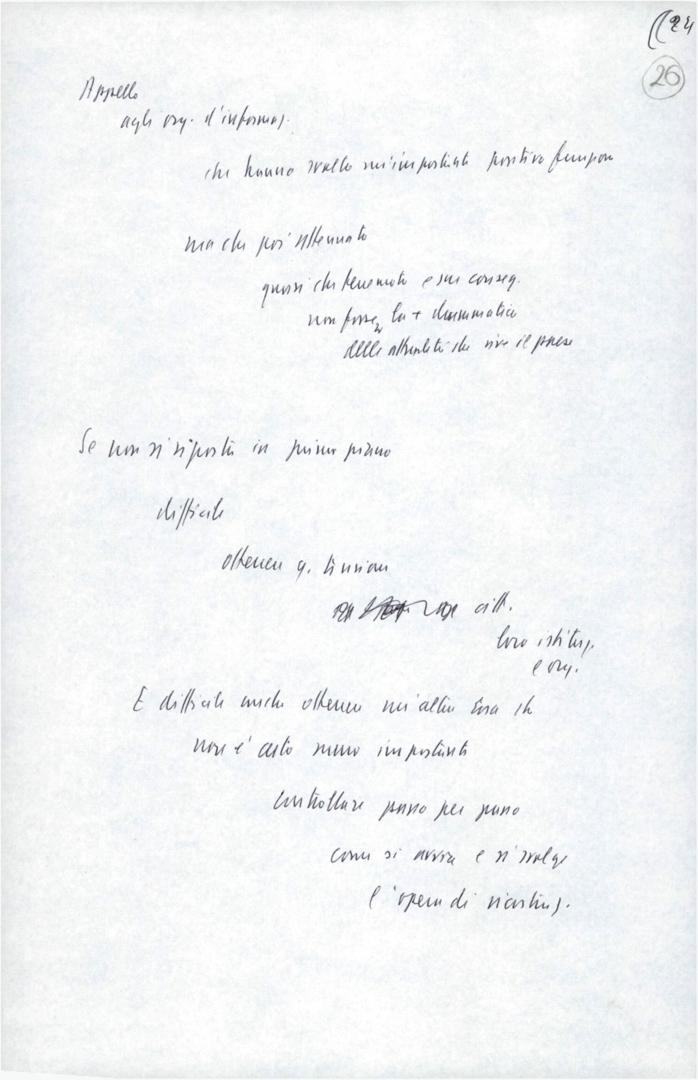 24
26
Appello
agli org. d'informaz.
che hanno svolto un'importante positiva funzione
ma che poi attenuato
quasi che terremoto e sue conseg.
non fosse la + drammatica
delle attualità che vive il paese
Se non si riporta in primo piano
difficile
ottenere q. tensione
citt.
loro istituz.
e org.
E difficile anche ottenere un'altra cosa che
non è certo meno importante
controllare passo per passo
come si avvia e si svolge
l'opera di ricostruz.